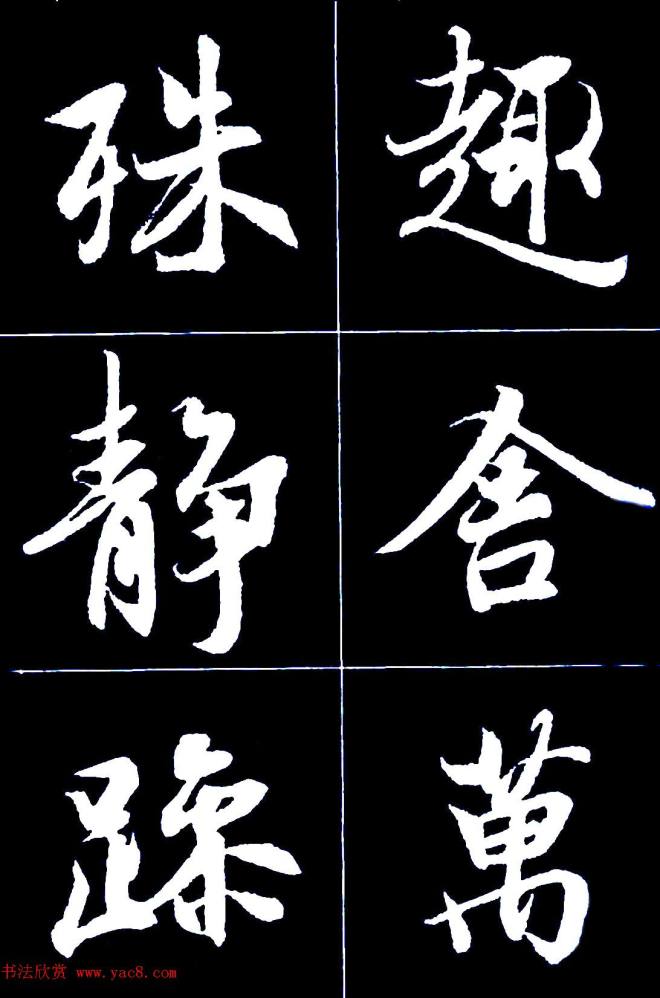 趣舍萬
殊静躁
书法欣赏 www.yac8.com